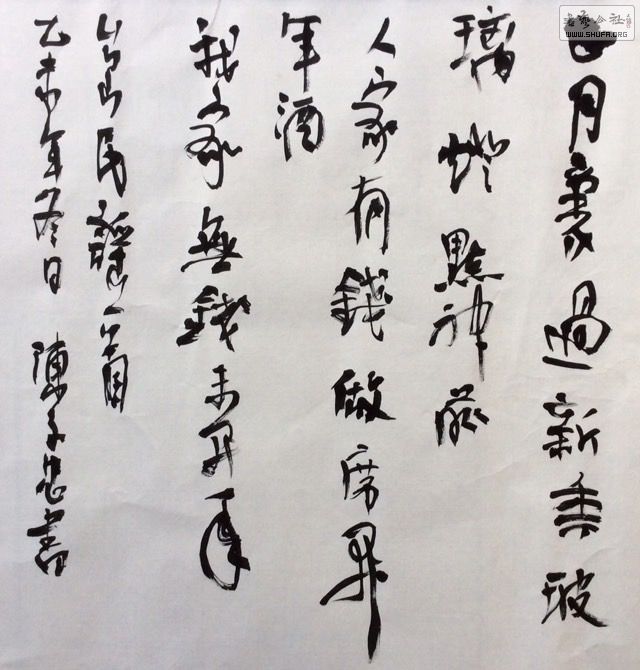 月裏過新春玻
璃燈點神
人家有錢做席
年酒
我家無錢未
山民謡一首
乙未年冬日 陳忠書
書法公社
WWW.SHUFA.ORG